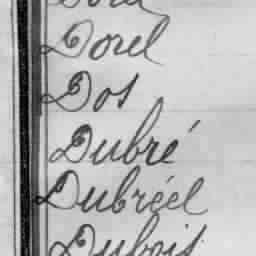 Dorel
Dos
Dubré
Dubréel
Dubois